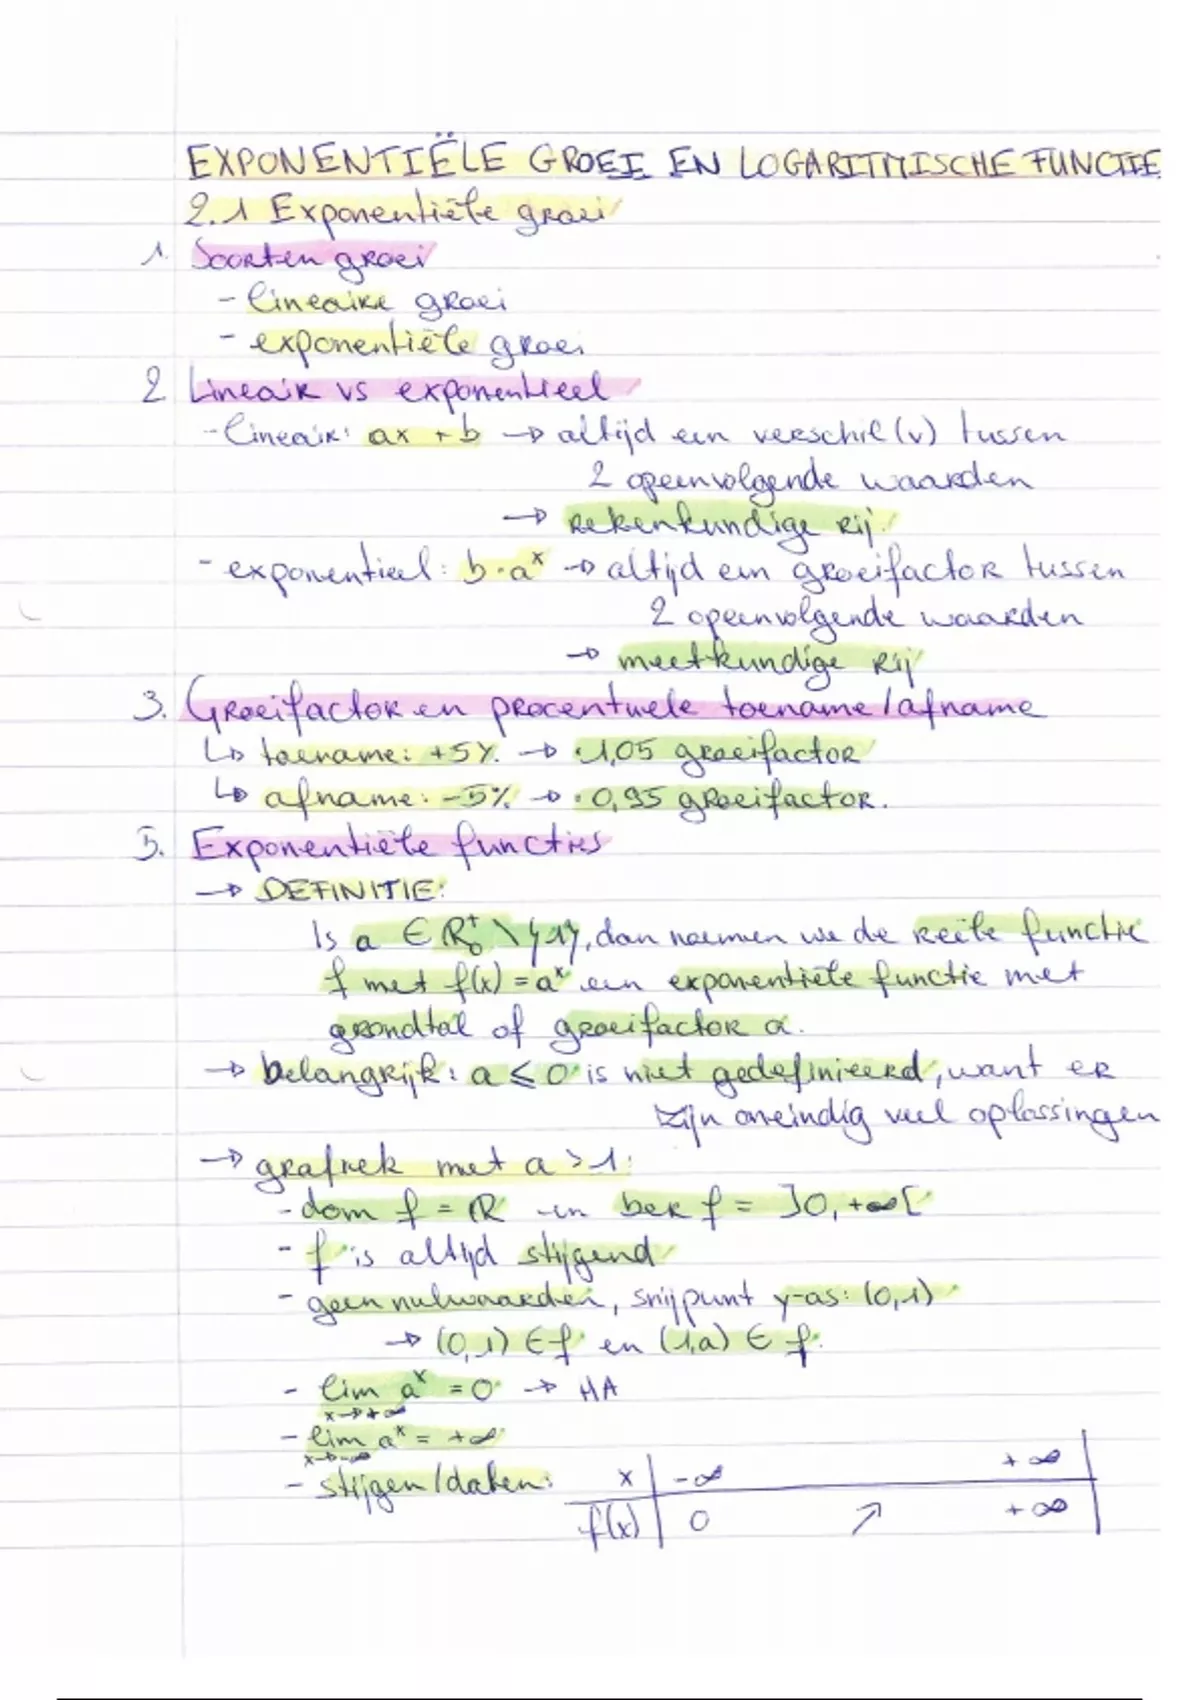 EXPONENTIËLE GROEI EN LOGARITMISCHE FUNCTIE
2.1 Exponentiële groei
1. Soorten groei
- lineaire groei
- exponentiële groei
2 Lineair vs exponentieel
- lineair: ax + b → altijd een verschil (v) tussen
2 opeenvolgende waarden
→ rekenkundige rij
- exponentieel: b·a^x → altijd een groeifactor tussen
2 opeenvolgende waarden
→ meetkundige rij
3. Groeifactor en procentuele toename/afname
↳ toename: +5% → ·1,05 groeifactor
↳ afname: -5% → ·0,95 groeifactor.
5. Exponentiële functies
→ DEFINITIE:
Is a ∈ ℝ₀⁺ \ {1}, dan noemen we de reële functie
f met f(x) = a^x een exponentiële functie met
grondtal of groeifactor a.
→ belangrijk: a ≤ 0 is niet gedefinieerd, want er
zijn oneindig veel oplossingen
→ grafiek met a > 1:
- dom f = ℝ en ber f = ]0, +∞[
- f is altijd stijgend
- geen nulwaarden, snijpunt y-as: (0,1)
→ (0,1) ∈ f en (1,a) ∈ f.
- lim a^x = 0 → HA
x→+∞
- lim a^x = +∞
x→-∞
- stijgen/dalen: x | -∞ +∞
f(x) | 0 ↗ +∞